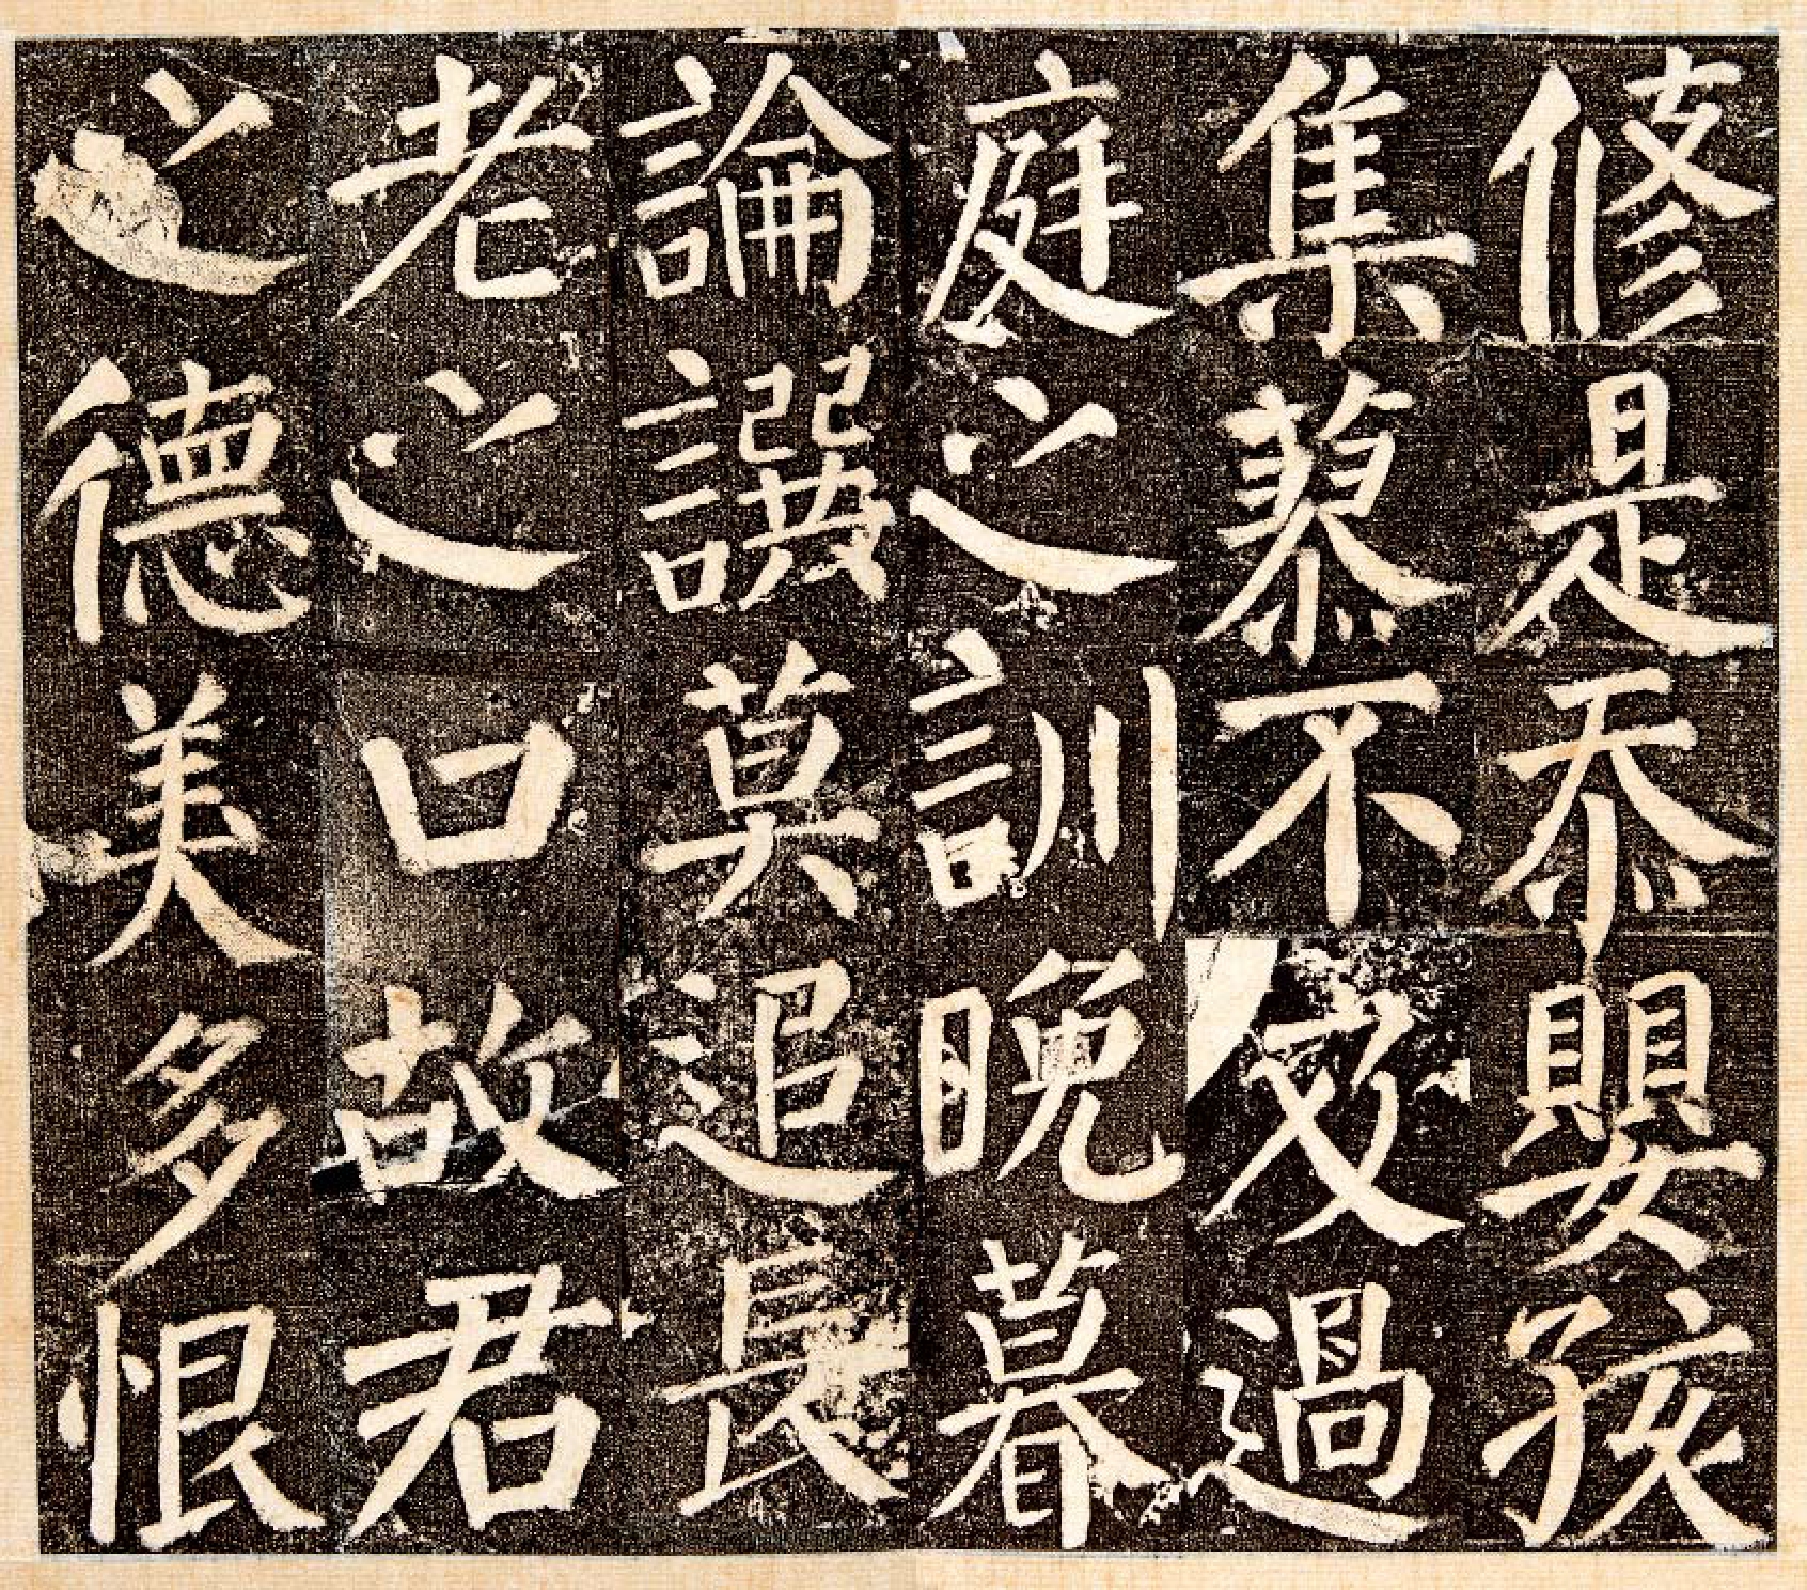 修是忝嬰孩
集不及過
庭之訓晚暮
論譔莫追長
老之口故君
之德美多恨